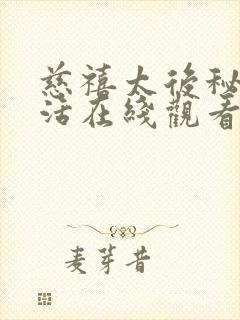 慈禧太後秘
活在綫觀看
麦芽昔